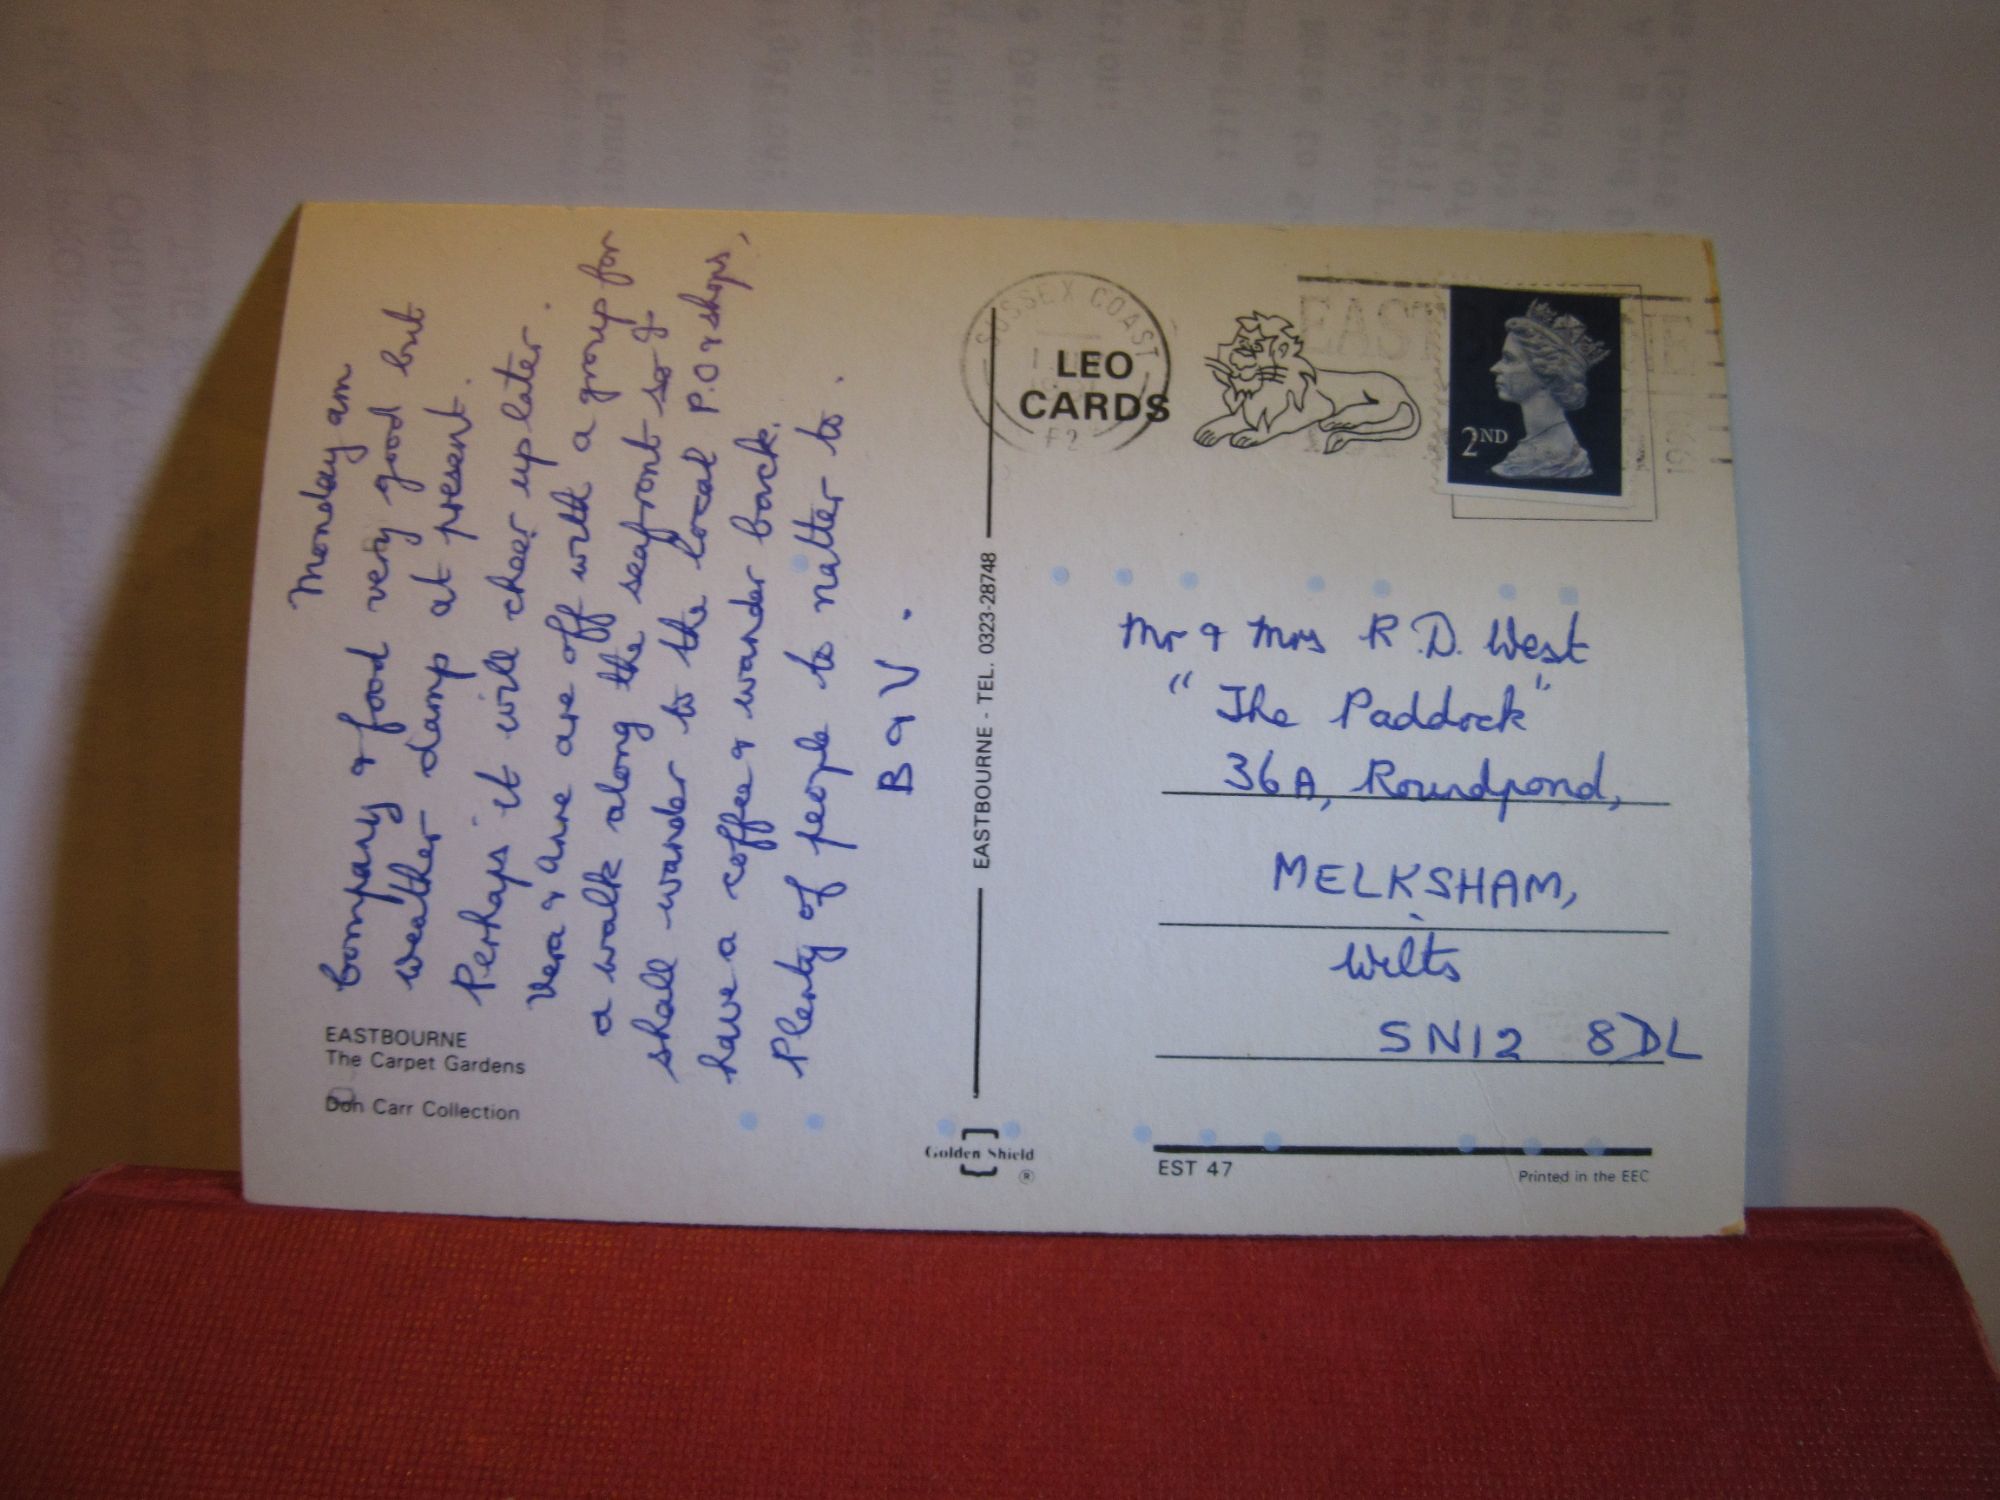 Monday am
Company & food very good but
weather damp at present.
Perhaps it will cheer up later.
Vera & Anne are off with a group for
a walk along the seafront so I
shall wander to the local P.O & shops,
have a coffee & wander back.
Plenty of people to natter to.
B & V.
EASTBOURNE
The Carpet Gardens
Don Carr Collection
EASTBOURNE - TEL. 0323-28748
Golden Shield
®
SUSSEX COAST
LEO
CARDS
2ND
Mr & Mrs R.D. West
"The Paddock"
36A, Roundpond,
MELKSHAM,
Wilts
SN12 8DL
EST 47
Printed in the EEC